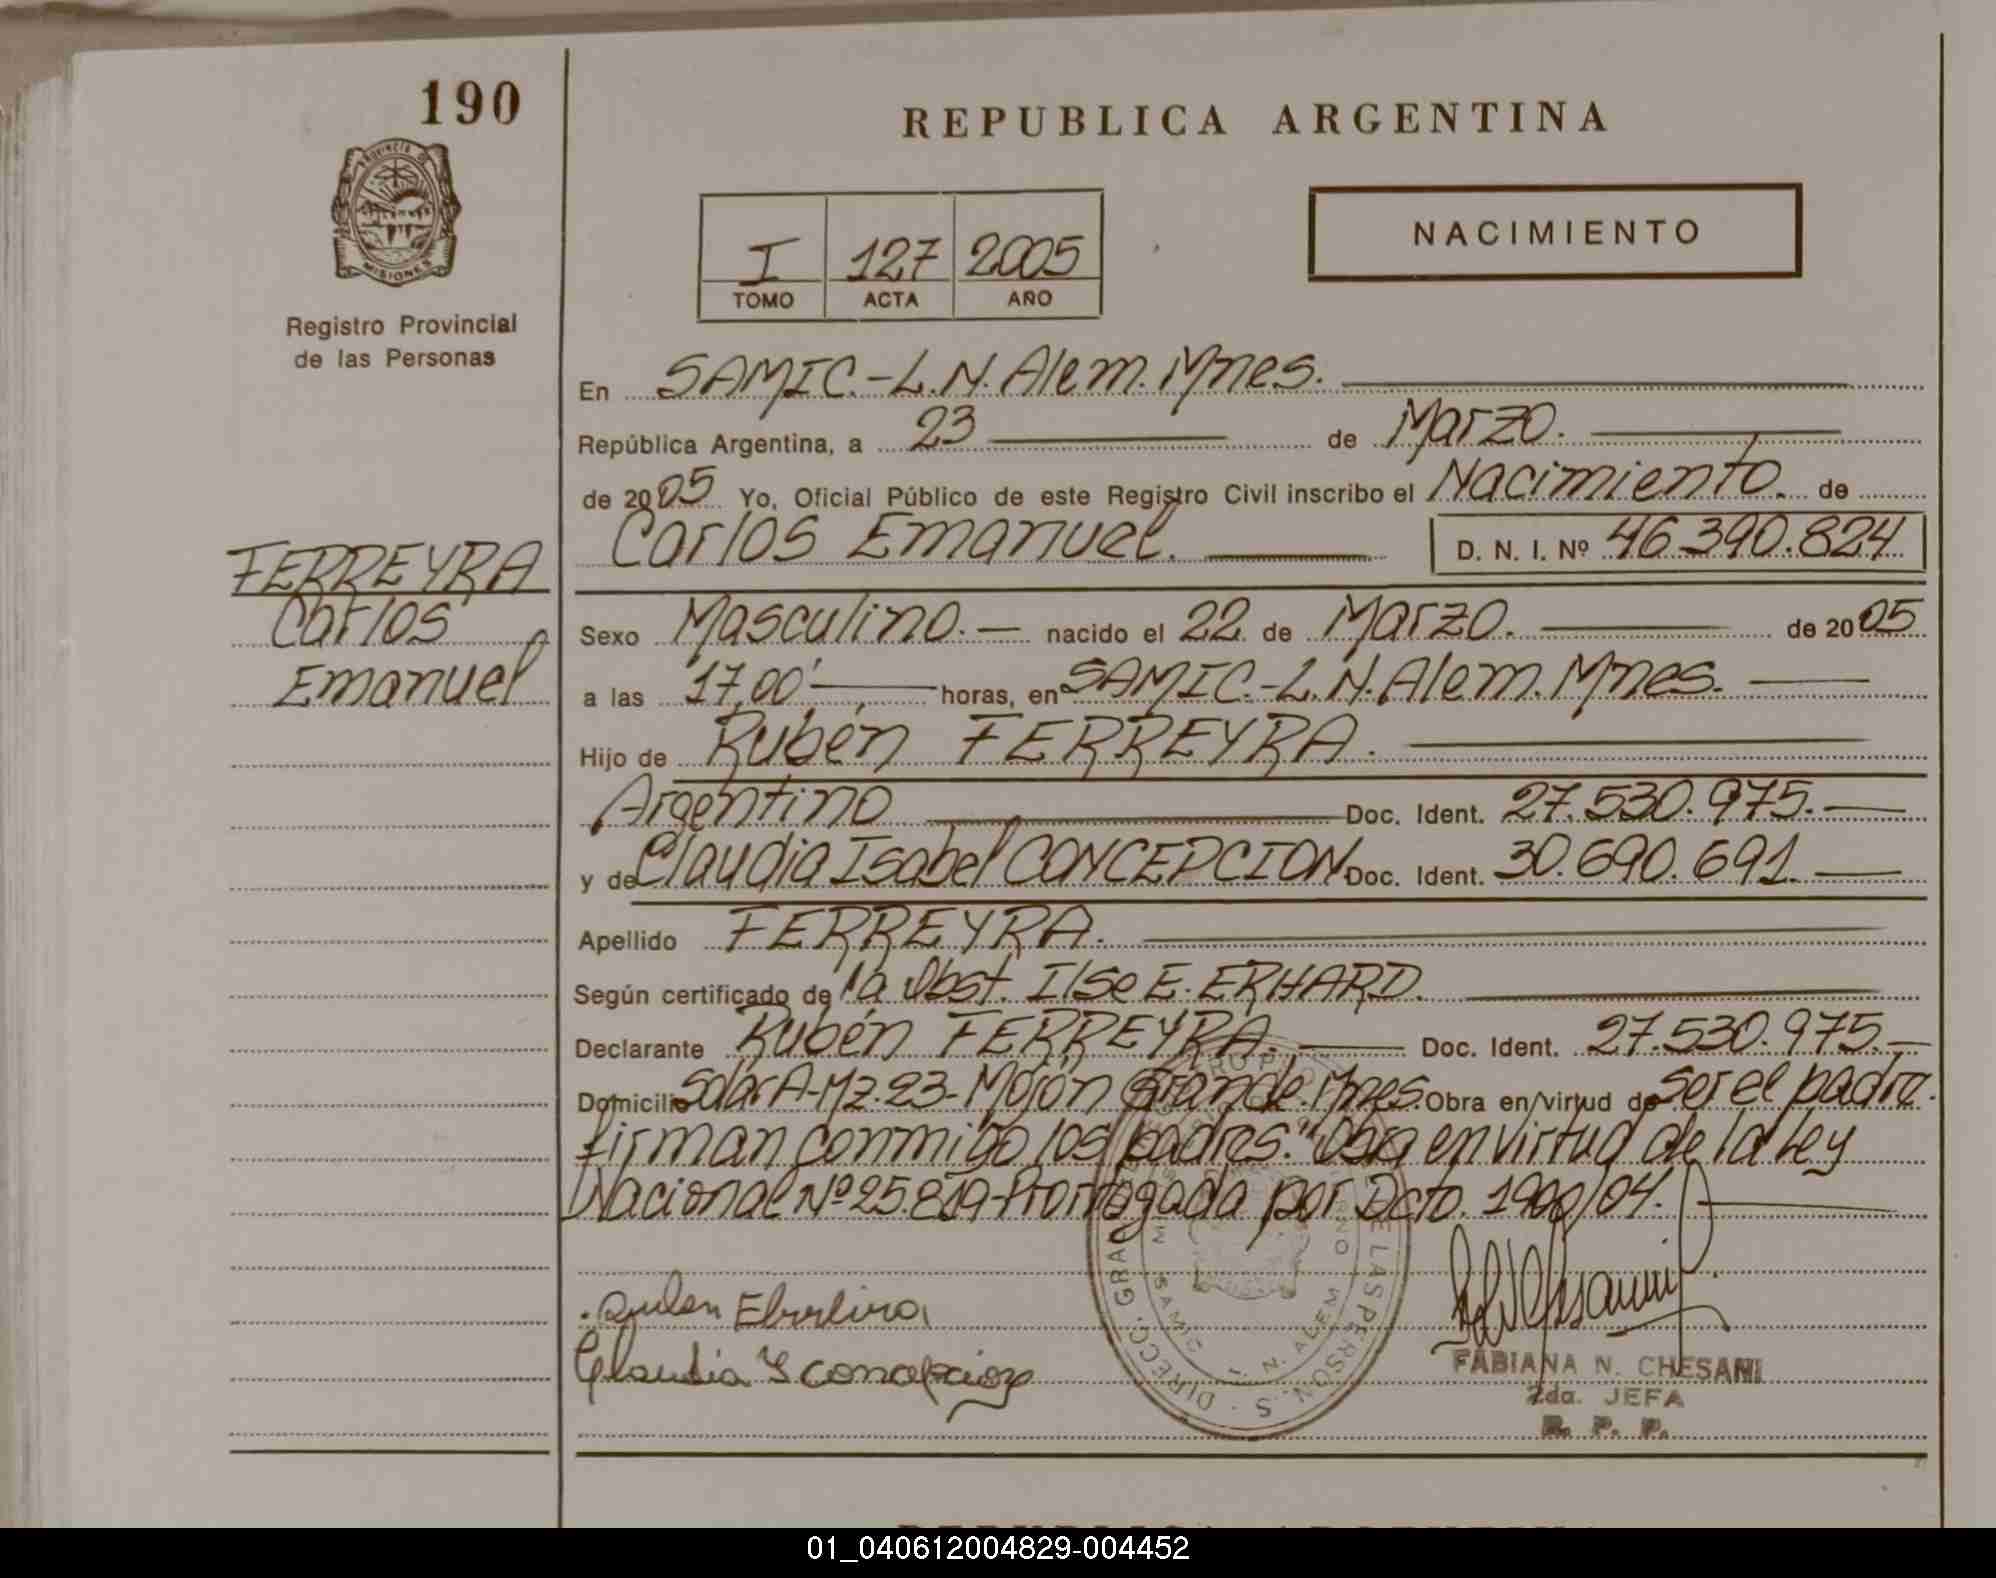 190
REPUBLICA ARGENTINA
PROVINCIA DE
MISIONES
Registro Provincial
de las Personas
I 127 2005
TOMO ACTA AÑO
NACIMIENTO
En SAMIC.-L.N. Alem. Mnes.
República Argentina, a 23 de Marzo.
de 2005 Yo, Oficial Público de este Registro Civil inscribo el Nacimiento. de
Carlos Emanuel. D. N. I. Nº 46.390.824
FERREYRA
Carlos
Emanuel
Sexo Masculino.- nacido el 22 de Marzo. de 2005
a las 17,00'- horas, en SAMIC.-L.N. Alem. Mnes.
Hijo de Rubén FERREYRA.
Argentino Doc. Ident. 27.530.975.-
y de Claudia Isabel CONCEPCION. Doc. Ident. 30.690.691.-
Apellido FERREYRA.
Según certificado de la Obst. Ilse E. ERHARD.
Declarante Rubén FERREYRA. Doc. Ident. 27.530.975.-
Domicilio Solar A-Mz.23-Mojón Grande. Mnes. Obra en/virtud de ser el padre.
firman conmigo los padres." Obra en virtud de la Ley
Nacional Nº 25.819-Prorrogada por Dcto. 1900/04.
Claudia I concepcion
DIRECC. GRAL
DE LAS PERSONAS
SAMIC
L. N. ALEM
FABIANA N. CHESANI
2da. JEFA
R. P. P.
01_040612004829-004452